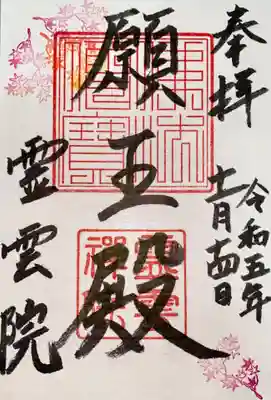 奉拝
令和五年
十一月十四日
願王殿
霊雲院